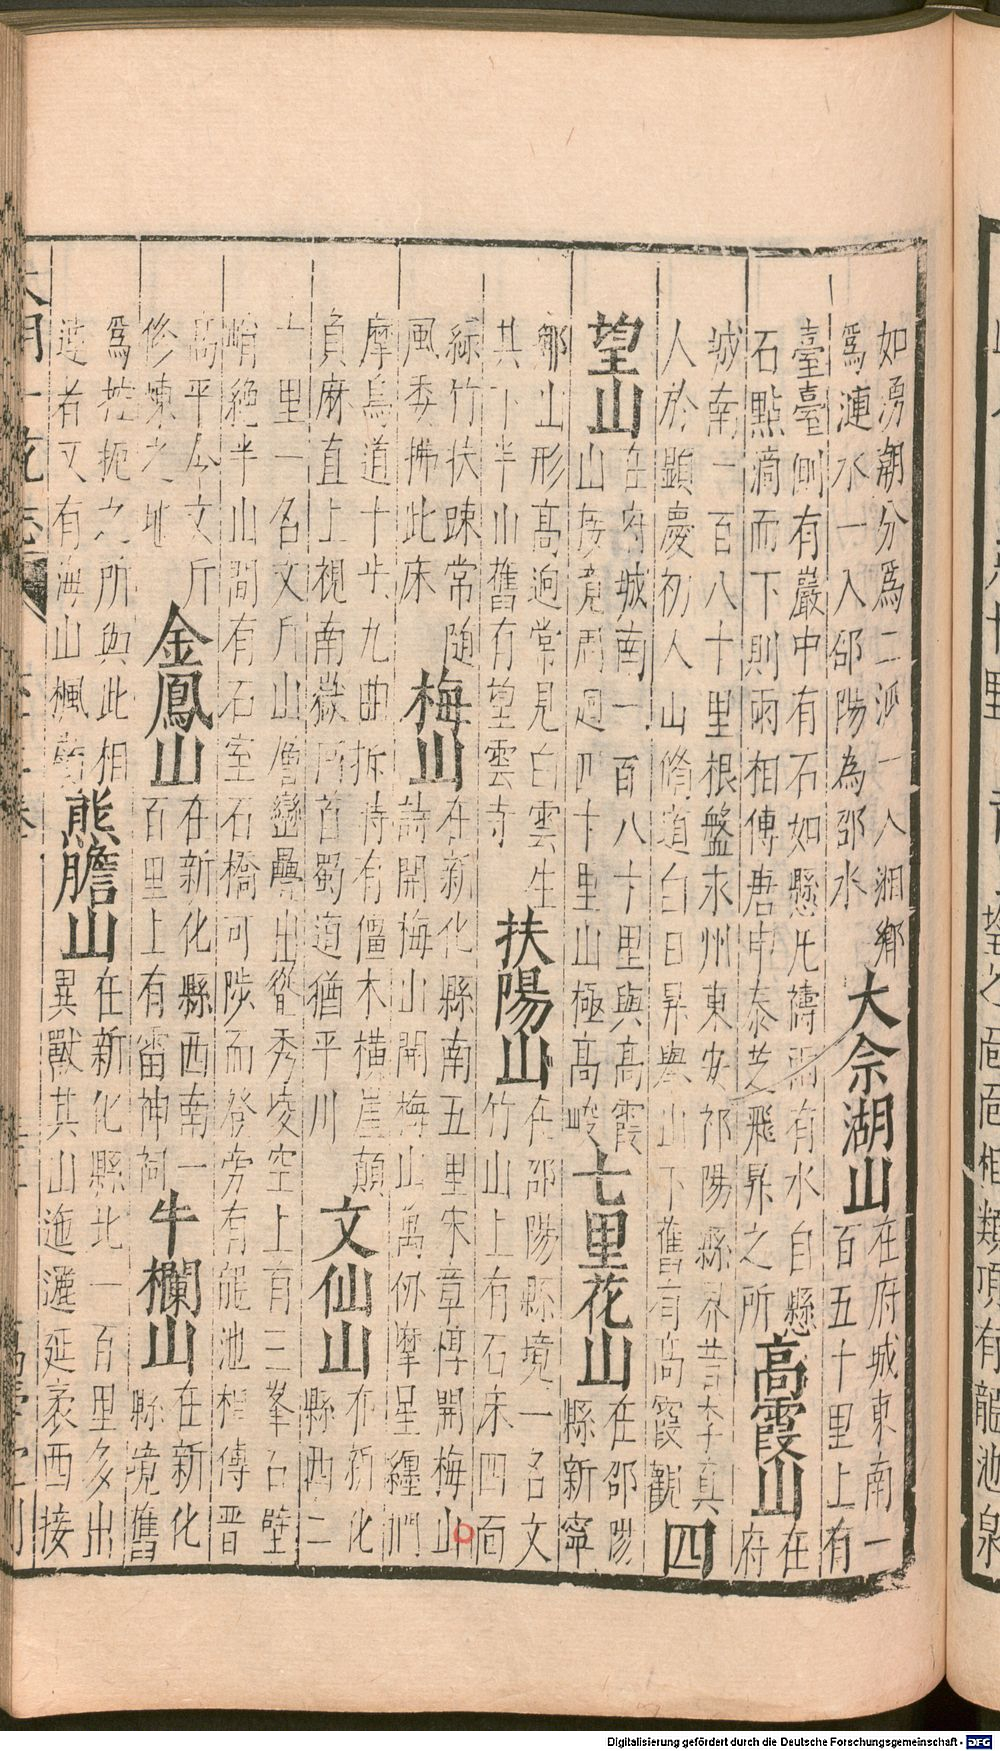 如湧潮分爲二派一入湘鄉
爲漣水一入邵陽為邵水
大佘湖山
在府城東南一
百五十里上有
臺臺側有巖中有石如懸凡禱雨有水自懸
石點滴而下則雨相傳唐申泰芝飛昇之所
高霞山
在
府
城南一百八十里根盤永州東安祁陽縣界昔李真
人於顯慶初入山脩道白日昇舉山下舊有高霞觀
四
望山
在府城南一百八十里與高霞
山接竟周迴四十里山極高峻
七里花山
在邵陽
縣新寧
鄉山形高逈常見白雲生
其下半山舊有望雲寺
扶陽山
在邵陽縣境一名文
竹山上有石床四面
綠竹扶踈常隨
風委拂此床
梅山
在新化縣南五里宋章惇開梅山
詩開梅山開梅山萬仞摩星躔捫
摩鳥道十步九曲折時有僵木橫崖顛
負麻直上視南嶽回首蜀道猶平川
文仙山
在新化
縣西二
十里一名文斤山層巒疊出聳秀凌空上有三峯石壁
峭絶半山間有石室石橋可陟而登旁有龍池相傳晉
高平令文斤
修煉之地
金鳳山
在新化縣西南一
百里上有雷神祠
牛欄山
在新化
縣境舊
爲控扼之所與此相
邇者又有海山楓嶺
熊膽山
在新化縣北一百里多出
異獸其山迤邐延袤西接
大明一統志
萬壽堂刊
Digitalisierung gefördert durch die Deutsche Forschungsgemeinschaft - DFG